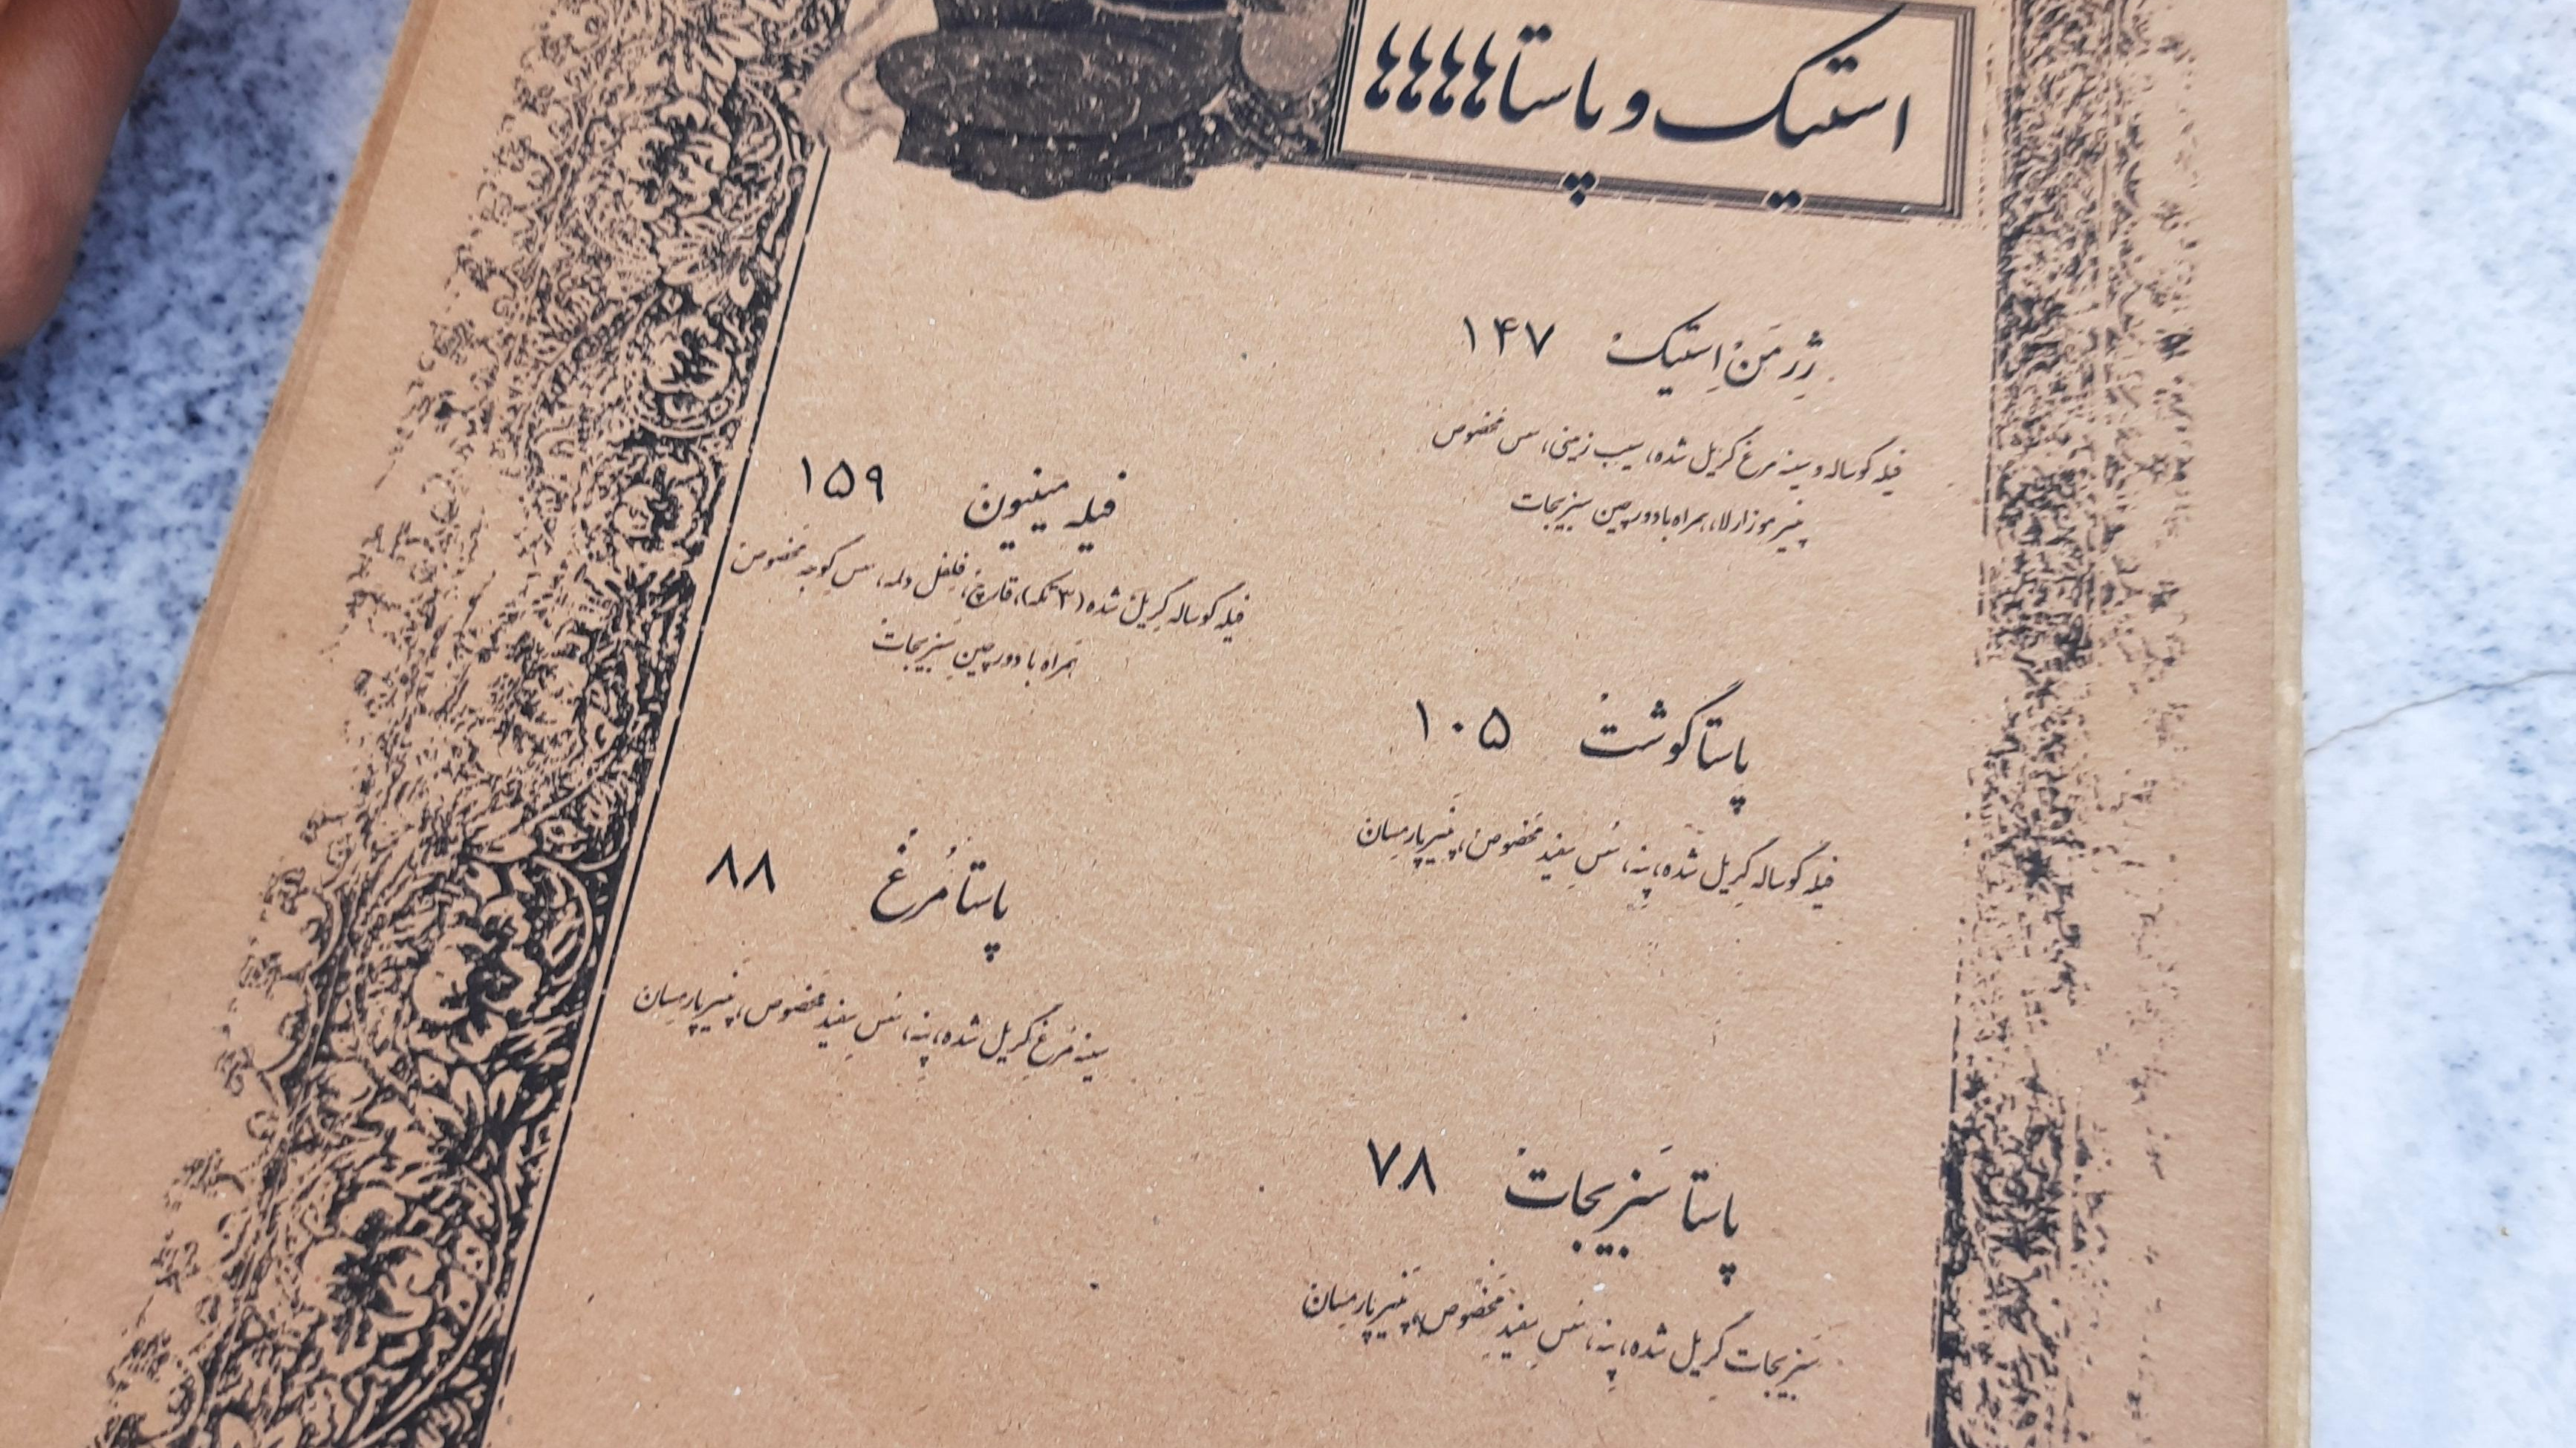 استیک و پاستاهاهاهاها
ژِرمَنْ اِستیکْ ۱۴۷
فیله گوساله و سینه مرغ گریل شده، سیب زمینی، سس مخصوص
پنیر موزارلا، همراه با دورچین سبزیجات
فیله مینیون ۱۵۹
فیله گوساله گریل شده (۳ تکه)، قارچ، فلفل دلمه، سس گوجه مخصوص
همراه با دورچین سبزیجات
پاستا گوشتْ ۱۰۵
فیله گوساله گریل شده، پنه، سس سفید مخصوص، پنیر پارمسان
پاستا مُرغْ ۸۸
سینه مرغ گریل شده، پنه، سس سفید مخصوص، پنیر پارمسان
پاستا سَبزیجاتْ ۷۸
سبزیجات گریل شده، پنه، سس سفید مخصوص، پنیر پارمسان